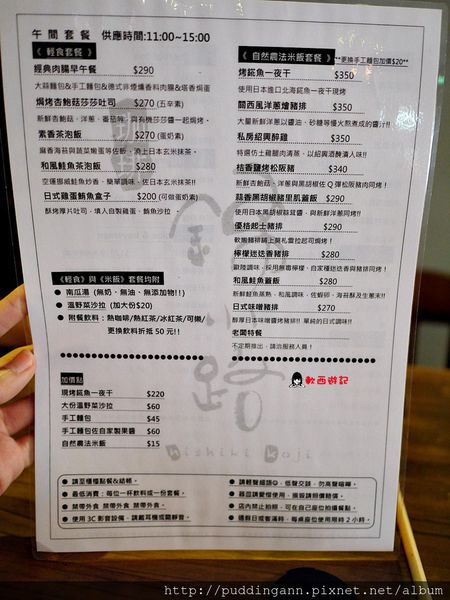 午間套餐 供應時間:11:00~15:00
《輕食套餐》
經典肉腸早午餐 $290
大蒜麵包&手工麵包&德式非煙燻香料肉腸&塔香焗蛋
焗烤杏鮑菇莎莎吐司 $270 (五辛素)
新鮮杏鮑菇、洋蔥、番茄等，與有機莎莎醬一起焗烤。
素香茶泡飯 $270 (蛋奶素)
鹽香海苔與蔬菜嫩蛋等佐飯，澆上日本玄米抹茶。
和風鮭魚茶泡飯 $280
空運挪威鮭魚炒香，簡單調味，佐日本玄米抹茶。
日式雞蛋鮪魚盒子 $200 (可做蛋奶素)
酥烤厚片吐司，填入自製雞蛋、鮪魚沙拉。
《輕食》與《米飯》套餐均附
● 南瓜湯 (無奶、無油、無添加物!!)
● 溫野菜沙拉 (加大份$20)
● 附餐飲料：熱咖啡/熱紅茶/冰紅茶/可樂/
更換飲料折抵 50 元!!
加價點
現烤鯱魚一夜干 $220
大份溫野菜沙拉 $60
手工麵包 $45
手工麵包佐自家製果醬 $60
自然農法米飯 $15
《自然農法米飯套餐》
**更換手工麵包加價$20**
烤鯱魚一夜干 $350
使用日本進口北海鯱魚一夜干現烤
關西風洋蔥燴豬排 $350
大量新鮮洋蔥以醬油、砂糖等慢火熬煮成的醬汁!!
私房紹興醉雞 $350
特選仿土雞腿肉清蒸，以紹興酒醃漬入味!!
桔香鹽烤松阪豬 $340
新鮮杏鮑菇、洋蔥與黑胡椒佐 Q 彈松阪豬肉同烤！
蒜香黑胡椒豬里肌蓋飯 $290
使用日本黑胡椒蒜茸醬，與新鮮洋蔥同烤!!
優格起士豬排 $290
軟嫩豬排鋪上莫札雷拉起司焗烤！
檸檬迷迭香雞排 $280
歐陸調味，採用無毒檸檬、自家種迷迭香與雞排同烤！
和風鮭魚蓋飯 $280
新鮮鮭魚蒸熟，和風調味，佐蝦卵、海苔酥及生蔥末!!
日式味噌豬排 $270
醇厚日本味噌醬烤豬排!! 單純的日式調味!!
老闆特餐
不定期推出，請洽服務人員！
軟西遊記
Nishiki Koji
● 請至櫃檯點餐&結帳。
● 最低消費：每位一杯飲料或一份套餐。
● 禁帶外食 禁帶外食 禁帶外食。
● 使用 3C 影音設備，請戴耳機或關靜音。
● 請輕聲細語，低聲交談，勿高聲喧嘩。
● 器皿請愛惜使用，損毀請照價賠償。
● 店內禁止拍照，可在自己座位拍攝餐點。
● 適假日或客滿時，每桌座位使用限時 2 小時。
http://puddingann.pixnet.net/album